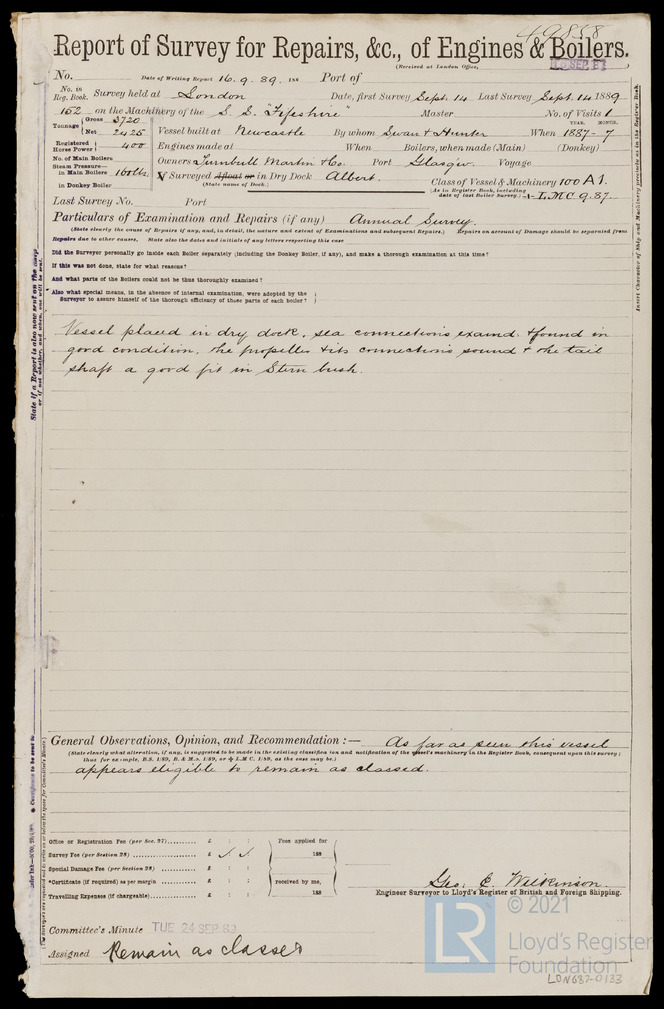 49858
Report of Survey for Repairs, &c., of Engines & Boilers.
(Received at London Office,
No. Date of Writing Report 16. 9. 89. 188 Port of
No. in Reg. Book. Survey held at London Date, first Survey Sept. 14 Last Survey Sept. 14 1889
152 on the Machinery of the S. S. "Fifeshire" Master No. of Visits 1
Tonnage Gross 3720 Net 2425 Vessel built at Newcastle By whom Swan & Hunter When 1887 - 7 YEAR. MONTH.
Registered Horse Power 400 Engines made at When Boilers, when made (Main) (Donkey)
No. of Main Boilers Owners Turnbull Martin & Co. Port Glasgow Voyage
Steam Pressure— in Main Boilers 160 lbs If Surveyed Afloat or in Dry Dock Albert. Class of Vessel & Machinery 100 A 1.
in Donkey Boiler (State name of Dock.) (As in Register Book, including date of last Boiler Survey.) L.M.C. 9. 87.
Last Survey No. Port
Particulars of Examination and Repairs (if any) Annual Survey.
(State clearly the cause of Repairs, if any, and, in detail, the nature and extent of Examinations and subsequent Repairs.) Repairs on account of Damage should be separated from
Repairs due to other causes, State also the dates and initials of any letters respecting this case
Did the Surveyor personally go inside each Boiler separately (including the Donkey Boiler, if any), and make a thorough examination at this time?
If this was not done, state for what reasons?
And what parts of the Boilers could not be thus thoroughly examined?
Also what special means, in the absence of internal examination, were adopted by the
Surveyor to assure himself of the thorough efficiency of those parts of each boiler?
Vessel placed in dry dock, sea connections examd. & found in
good condition, the propeller & its connections sound & the tail
shaft a good fit in Stern bush.
General Observations, Opinion, and Recommendation :— As far as seen this vessel
(State clearly what alteration, if any, is suggested to be made in the existing classification and notification of the vessel's machinery in the Register Book, consequent upon this survey;
thus for example, B.S. 1/89, B. & M.S. 1/89, or L.M.C. 1/89, as the case may be.)
appears eligible to remain as classed.
Office or Registration Fee (per Sec. 27) £ : :
Survey Fee (per Section 28) £ : : Fees applied for 188
Special Damage Fee (per Section 28) £ : :
*Certificate (if required) as per margin £ : : received by me,
Travelling Expenses (if chargeable) £ : : 188
Geo. E. Wilkinson.
Engineer Surveyor to Lloyd's Register of British and Foreign Shipping.
Committee's Minute TUE 24 SEP 89
Assigned Remain as classed
© 2021
LR Lloyd's Register
Foundation
LON687-0133
Insert Character of Ship and Machinery precisely as in the Register Book.
State if a Report is also now sent on the Ship
or if not whether, and when, one will be sent